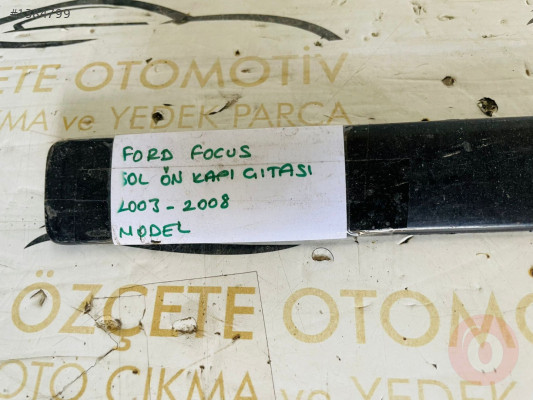 ÇETE OTOMOTİV
KMA ve YEDEK PARÇA
FORD FOCUS
SOL ÖN KAPI ÇITASI
2003-2008
MODEL
ÖZÇETE OTOMOT
OTO ÇIKMA ve YEDEK